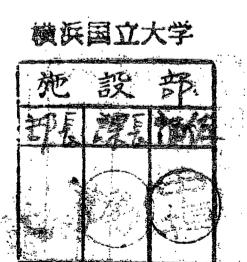 横浜国立大学
施設部
部長 課長 担任